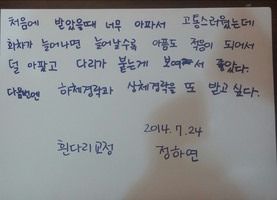 처음에 받았을때 너무 아파서 고통스러웠는데
회차가 늘어나면 늘어날수록 아픔도 적응이 되어서
덜 아팠고 다리가 붙는게 보여서 좋았다.
다음번엔 하체경락과 상체경락을 또 받고싶다.
2014.7.24
휜다리교정 정하연